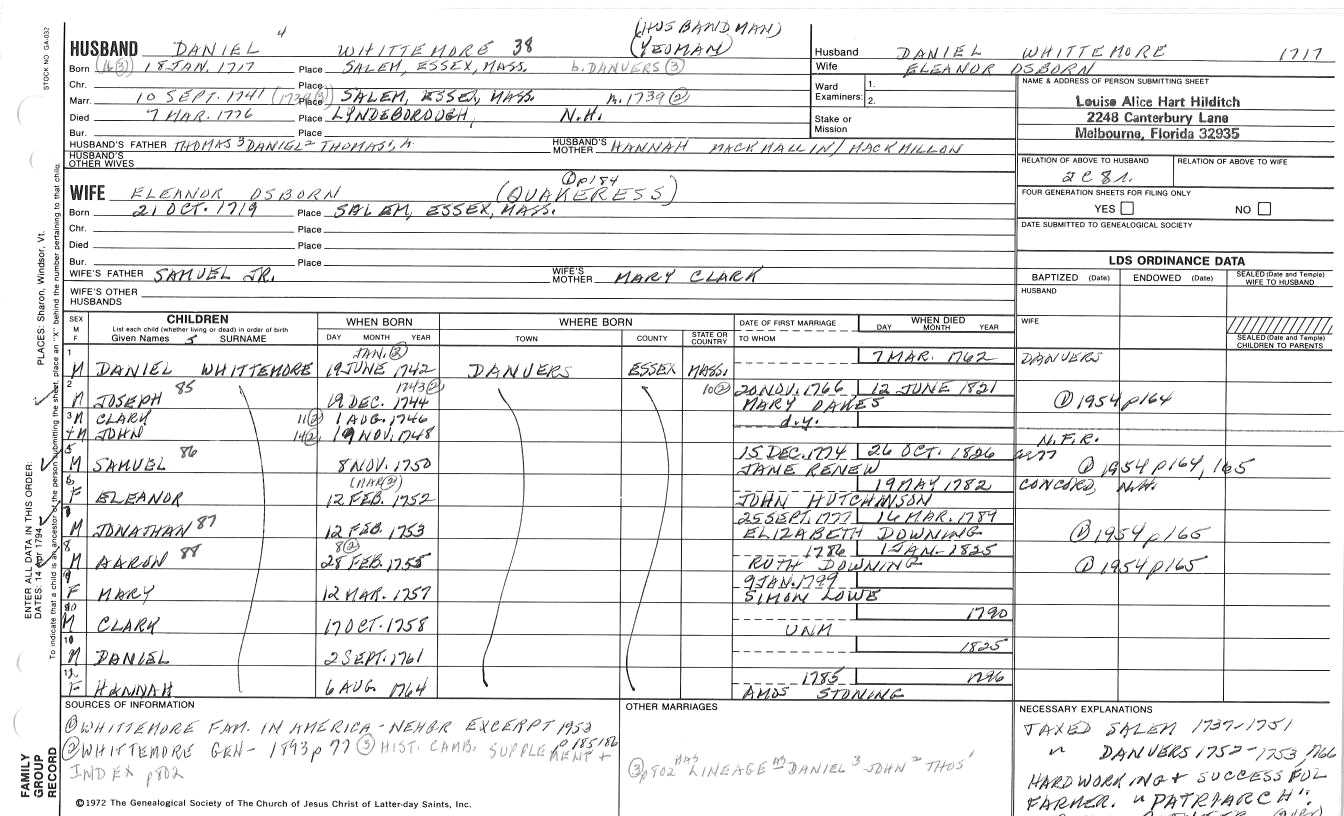 STOCK NO GA-032
HUSBAND DANIEL 4 WHITTEMORE 38 (HUSBANDMAN) (YEOMAN)
Born (4③) 18 JAN. 1717 Place SALEM, ESSEX, MASS. b. DANVERS ③
Chr. Place
Marr. 10 SEPT. 1741 (1739③) Place SALEM, ESSEX, MASS. m. 1739②
Died 7 MAR. 1776 Place LYNDEBOROUGH, N.H.
Bur. Place
HUSBAND'S FATHER THOMAS³ DANIEL² THOMAS¹ HUSBAND'S MOTHER HANNAH MACKMALLIN/MACKMILLON
HUSBAND'S OTHER WIVES
WIFE ELEANOR OSBORN ①p184 (QUAKERESS)
Born 21 OCT. 1719 Place SALEM, ESSEX, MASS.
Chr. Place
Died Place
Bur. Place
WIFE'S FATHER SAMUEL JR. WIFE'S MOTHER MARY CLARK
WIFE'S OTHER HUSBANDS
Husband DANIEL WHITTEMORE 1717
Wife ELEANOR OSBORN
Ward Examiners: 1. 2.
Stake or Mission
NAME & ADDRESS OF PERSON SUBMITTING SHEET
Louise Alice Hart Hilditch
2248 Canterbury Lane
Melbourne, Florida 32935
RELATION OF ABOVE TO HUSBAND RELATION OF ABOVE TO WIFE
2C8r.
FOUR GENERATION SHEETS FOR FILING ONLY
YES NO
DATE SUBMITTED TO GENEALOGICAL SOCIETY
LDS ORDINANCE DATA
BAPTIZED (Date) ENDOWED (Date) SEALED (Date and Temple) WIFE TO HUSBAND
HUSBAND
WIFE
SEALED (Date and Temple) CHILDREN TO PARENTS
SEX M F CHILDREN List each child (whether living or dead) in order of birth Given Names 5 SURNAME WHEN BORN DAY MONTH YEAR WHERE BORN TOWN COUNTY STATE OR COUNTRY DATE OF FIRST MARRIAGE TO WHOM WHEN DIED DAY MONTH YEAR
1 M DANIEL WHITTEMORE JAN.② 19 JUNE 1742 DANVERS ESSEX MASS. 7 MAR. 1762 DANVERS
2 M JOSEPH 85 1743② 19 DEC. 1744 10② 20 NOV. 1766 MARY OAKES 12 JUNE 1821 ① 1954 p164
3 M CLARK 11② 1 AUG. 1746 d.y.
4 M JOHN 14② 19 NOV. 1748 N.F.R.
5 M SAMUEL 86 8 NOV. 1750 15 DEC. 1774 JANE RENEW 26 OCT. 1826 ① 1954 p164, 165
6 F ELEANOR (MAR②) 12 FEB. 1752 JOHN HUTCHINSON 19 MAY 1782 CONCORD, N.H.
M JONATHAN 87 12 FEB. 1753 25 SEPT. 1777 ELIZABETH DOWNING 16 MAR. 1789 ① 1954 p165
8 M AARON 88 8② 28 FEB. 1755 1786 RUTH DOWNING 1 JAN-1825 ① 1954 p165
9 F MARY 12 MAR. 1757 9 JAN. 1799 SIMON LOWE
10 M CLARK 17 OCT. 1758 UNM 1790
M DANIEL 2 SEPT. 1761 1825
12 F HANNAH 6 AUG. 1764 1785 AMOS STONING 1796
SOURCES OF INFORMATION
① WHITTEMORE FAM. IN AMERICA - NEHGR EXCERPT 1953
② WHITTEMORE GEN- 1893 p 77 ③ HIST. CAMB. SUPPLEMENT + p 185,186
INDEX p802
OTHER MARRIAGES
③ p802 HAS LINEAGE AS DANIEL³ JOHN² THOS¹
NECESSARY EXPLANATIONS
TAXED SALEM 1737-1751
" DANVERS 1752-1753, 1766
HARDWORKING + SUCCESSFUL
FARMER. "PATRIARCH".
©1972 The Genealogical Society of The Church of Jesus Christ of Latter-day Saints, Inc.
FAMILY GROUP RECORD
ENTER ALL DATA IN THIS ORDER:
DATES: 14 Apr 1794
PLACES: Sharon, Windsor, Vt.
To indicate that a child is an ancestor of the person submitting the sheet, place an "X" behind the number pertaining to that child.